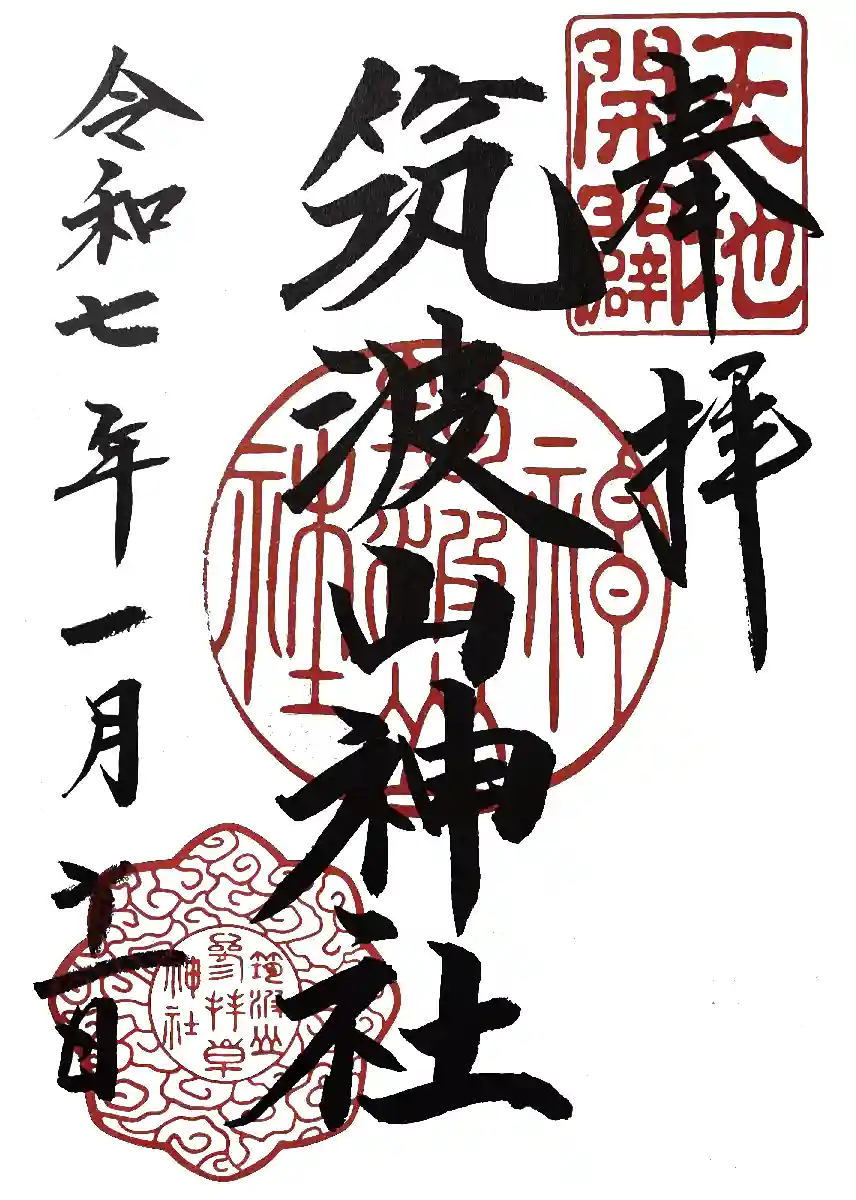 奉拝
天地
開闢
筑波山神社
筑波山
神
社
令和七年一月十一日
筑波山
參拝章
神社